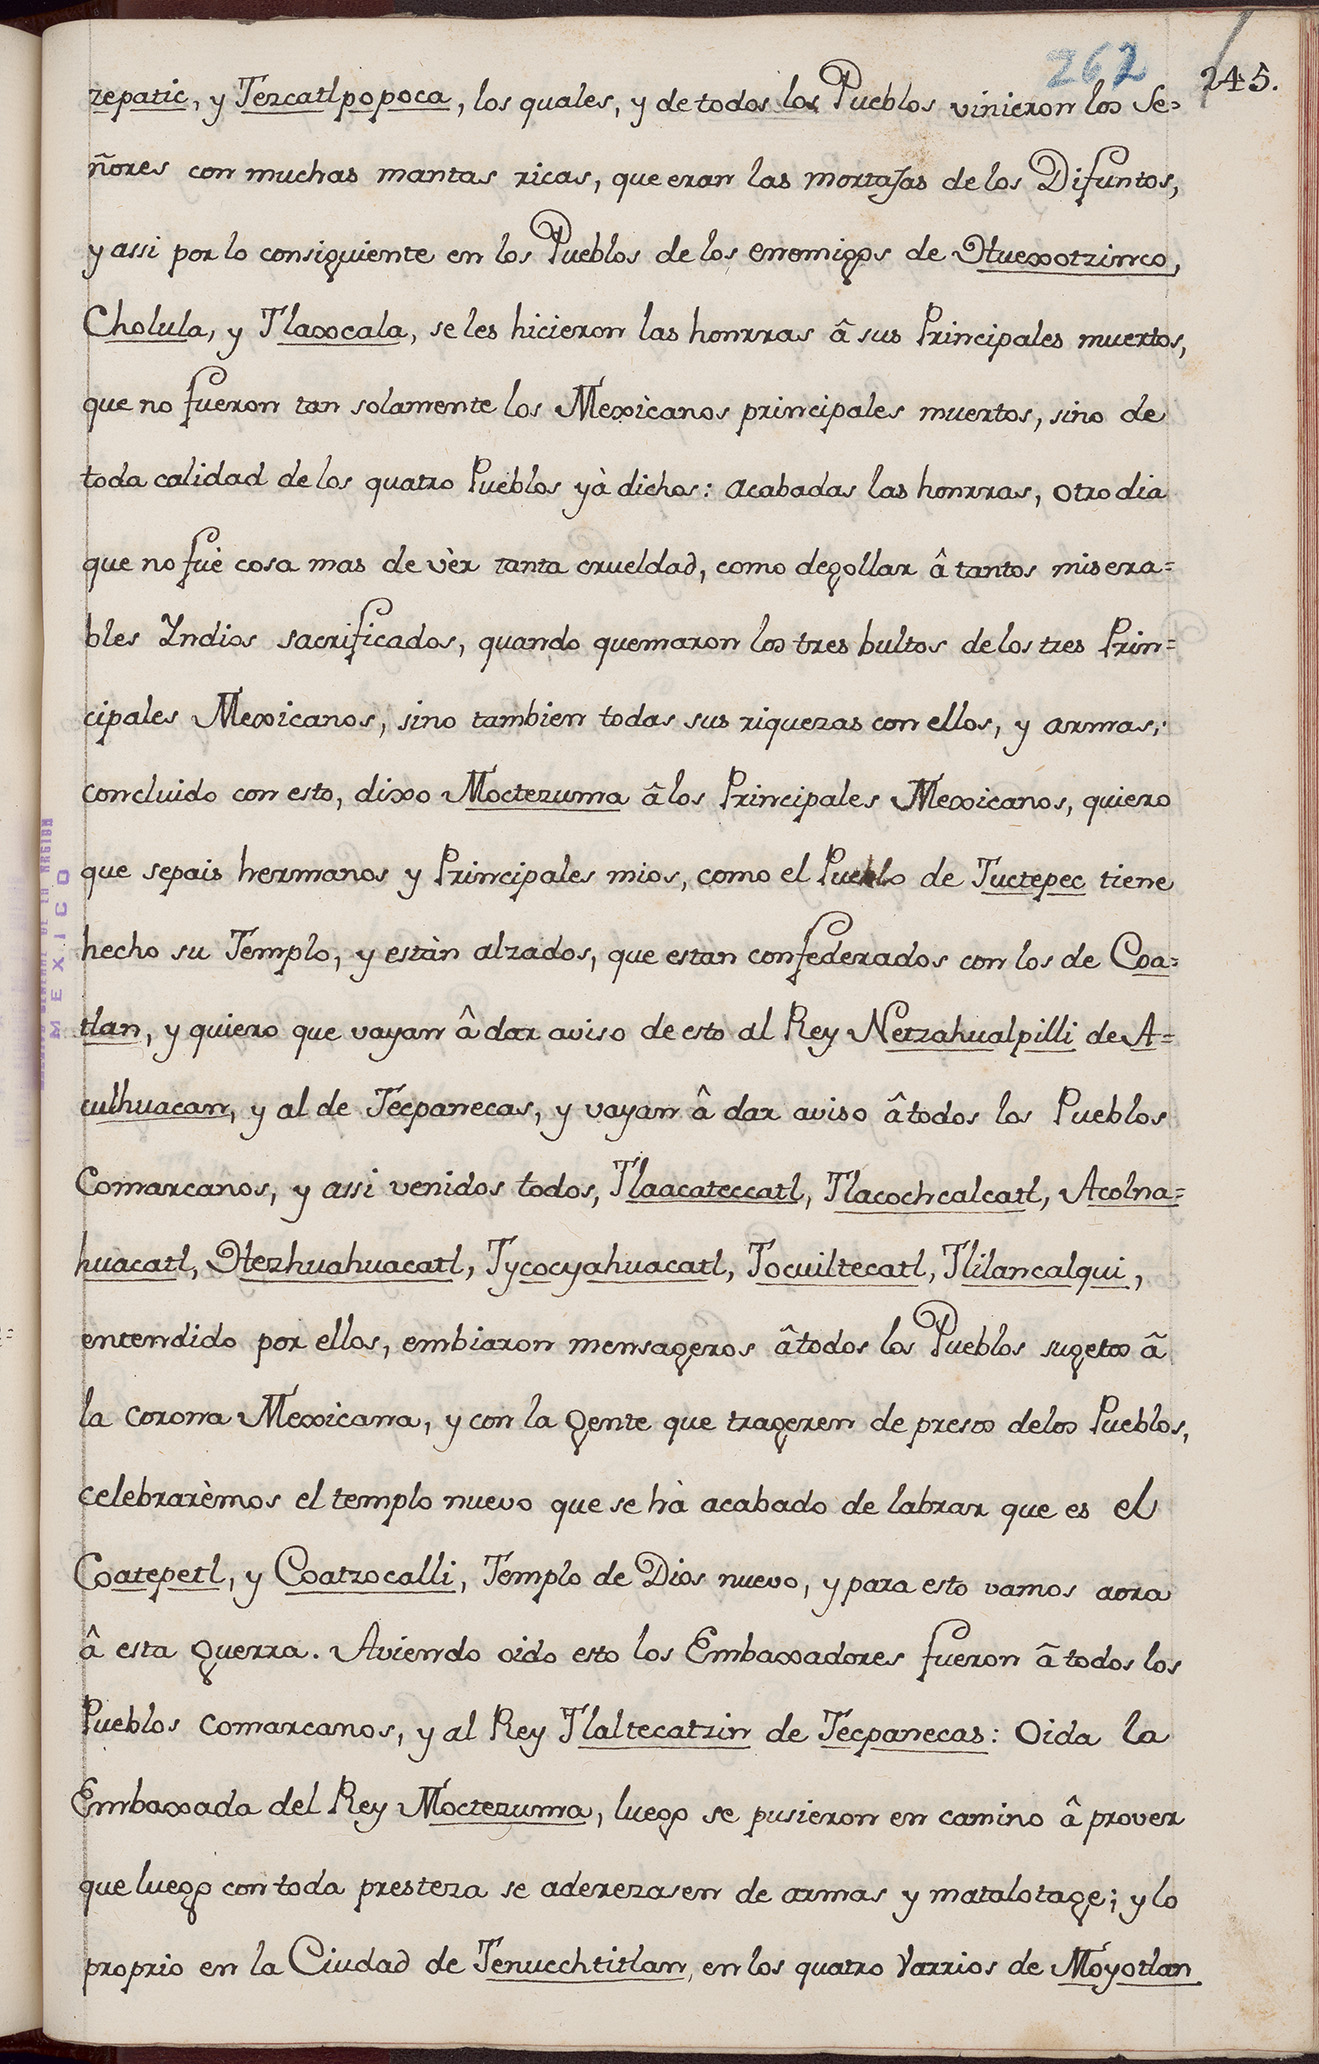 262
245.
zepatic, y Tezcatlpopoca, los quales, y de todos los Pueblos vinieron los Se=
ñores con muchas mantas ricas, que eran las mortajas de los Difuntos,
y assi por lo consiguiente en los Pueblos de los enemigos de Huexotzinco,
Cholula, y Tlaxcala, se les hicieron las honrras â sus Principales muertos,
que no fueron tan solamente los Mexicanos principales muertos, sino de
toda calidad de los quatro Pueblos yà dichos: acabadas las honrras, otro dia
que no fuè cosa mas de vèr tanta crueldad, como degollar â tantos misera=
bles Yndios sacrificados, quando quemaron los tres bultos de los tres Prin=
cipales Mexicanos, sino tambien todas sus riquezas con ellos, y armas;
concluido con esto, dixo Moctezuma â los Principales Mexicanos, quiero
que sepais hermanos y Principales mios, como el Pueblo de Tuctepec tiene
hecho su Templo, y estàn alzados, que estan confederados con los de Coa=
tlan, y quiero que vayan â dar aviso de esto al Rey Netzahualpilli de A=
culhuacan, y al de Tecpanecas, y vayan â dar aviso â todos los Pueblos
Comarcanos, y assi venidos todos, Tlaacateccatl, Tlacochcalcatl, Acolna=
huacatl, Hezhuahuacatl, Tycocyahuacatl, Tocuiltecatl, Tlilancalqui,
entendido por ellos, embiaron mensageros â todos los Pueblos sugetos â
la corona Mexicana, y con la gente que trageren de presos de los Pueblos,
celebrarèmos el templo nuevo que se hà acabado de labrar que es el
Coatepetl, y Coatzocalli, Templo de Dios nuevo, y para esto vamos aora
â esta guerra. Aviendo oido esto los Embaxadores fueron â todos los
Pueblos comarcanos, y al Rey Tlaltecatzin de Tecpanecas: Oida la
Embaxada del Rey Moctezuma, luego se pusieron en camino â prover
que luego con toda presteza se aderezasen de armas y matalotage; y lo
proprio en la Ciudad de Tenucchtitlan, en los quatro Varrios de Moyotlan
MEXICO